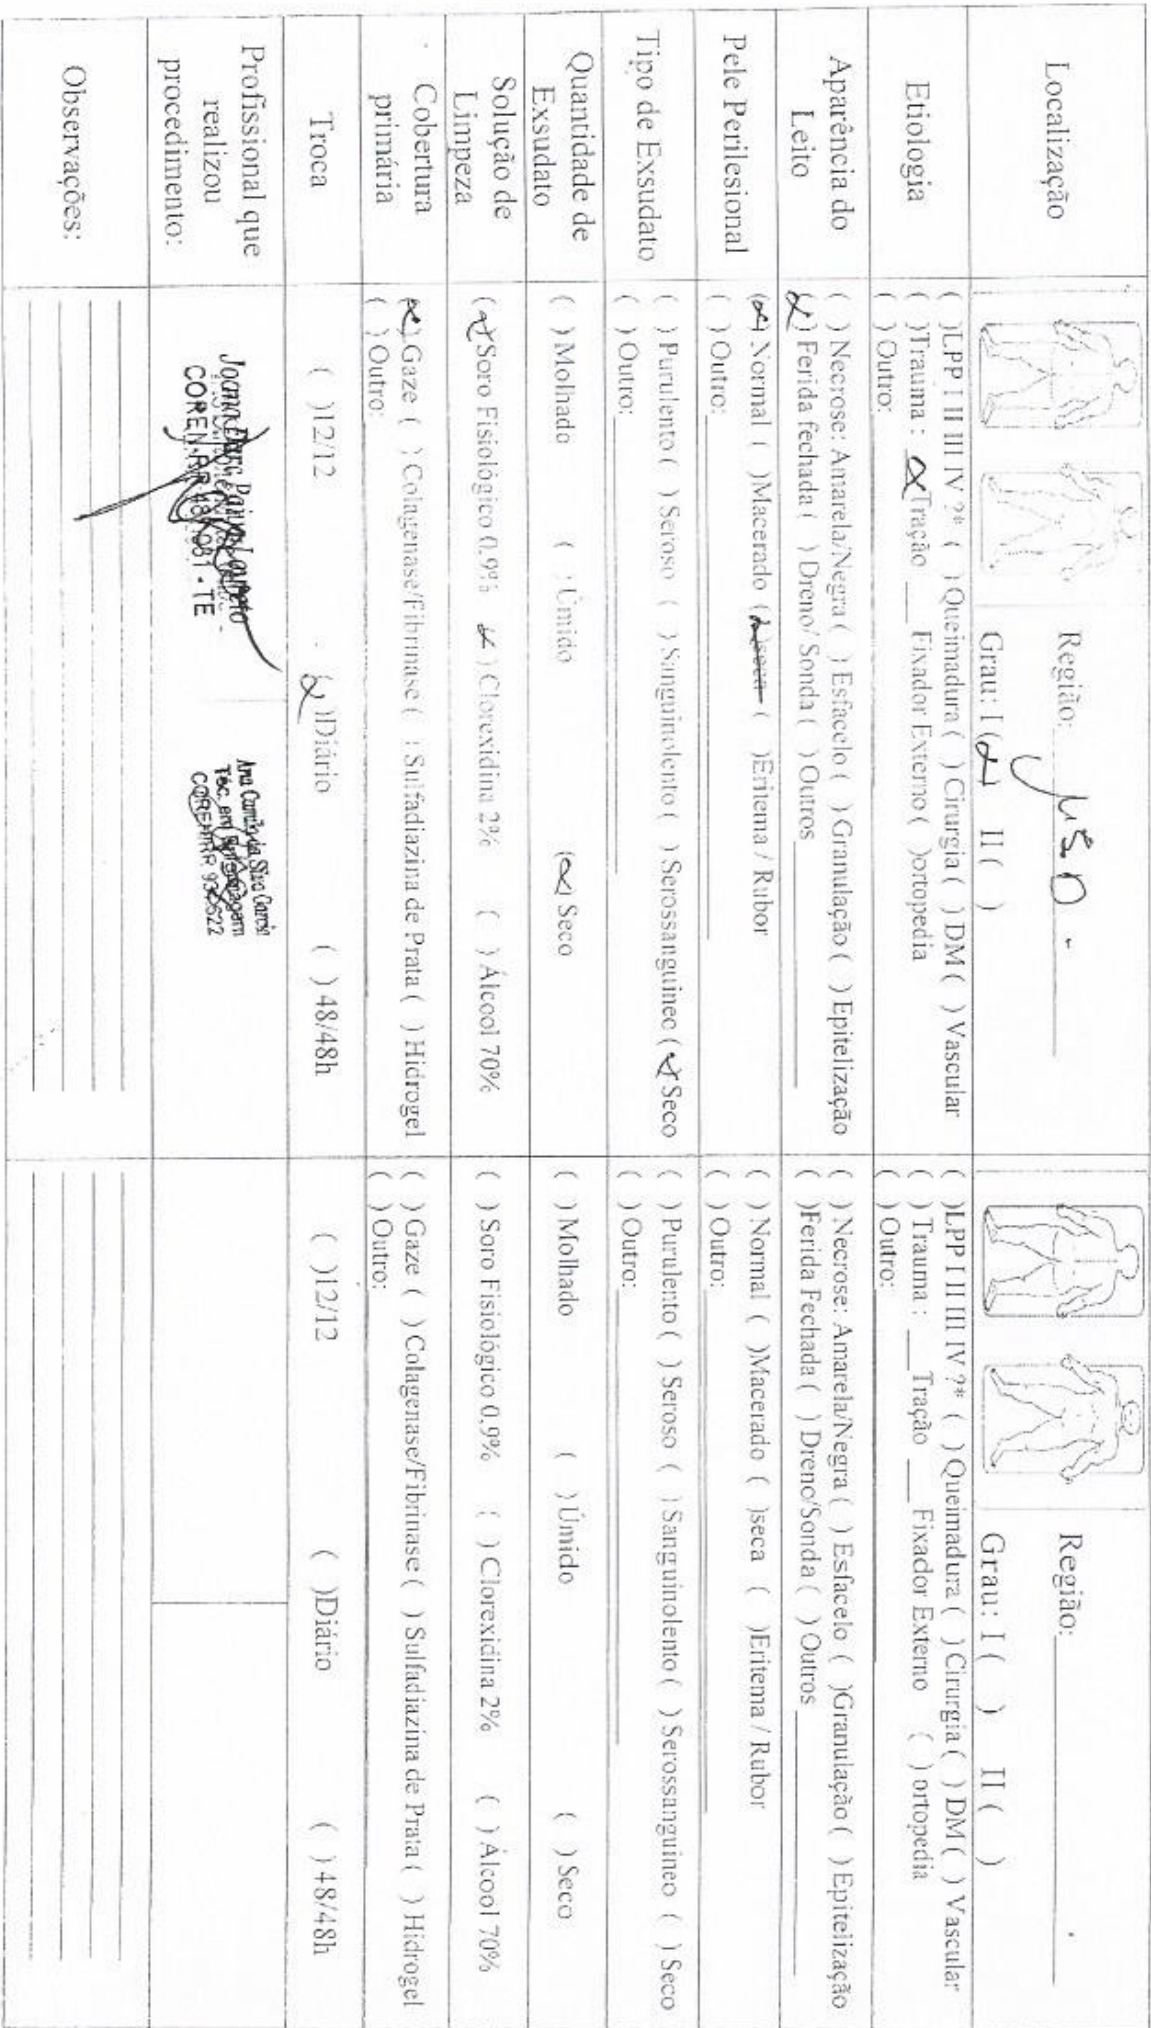 Localização
Região: MSD.
Grau: I (x) II ( )
Região:
Grau: I ( ) II ( )
Etiologia
( )LPP I II III IV ?* ( )Queimadura ( ) Cirurgia ( ) DM ( ) Vascular
( )Trauma : x Tração ___ Fixador Externo ( )ortopedia
( ) Outro:
( )LPP I II III IV ?* ( ) Queimadura ( )Cirurgia ( ) DM ( ) Vascular
( ) Trauma : ___ Tração ___ Fixador Externo ( ) ortopedia
( ) Outro:
Aparência do
Leito
( ) Necrose: Amarela/Negra ( ) Esfacelo ( ) Granulação ( ) Epitelização
(x) Ferida fechada ( ) Dreno/ Sonda ( ) Outros
( ) Necrose: Amarela/Negra ( ) Esfacelo ( )Granulação ( ) Epitelização
( )Ferida Fechada ( ) Dreno/Sonda ( ) Outros
Pele Perilesional
(x) Normal ( )Macerado (x)seca ( )Eritema / Rubor
( ) Outro:
( ) Normal ( )Macerado ( )seca ( )Eritema / Rubor
( ) Outro:
Tipo de Exsudato
( ) Purulento ( ) Seroso ( )Sanguinolento ( ) Serossanguineo (x) Seco
( ) Outro:
( ) Purulento ( ) Seroso ( )Sanguinolento ( ) Serossanguineo ( ) Seco
( ) Outro:
Quantidade de
Exsudato
( ) Molhado ( ) Úmido (x) Seco
( ) Molhado ( )Úmido ( ) Seco
Solução de
Limpeza
(x) Soro Fisiológico 0.9% (x) Clorexidina 2% ( ) Álcool 70%
( ) Soro Fisiológico 0.9% ( ) Clorexidina 2% ( ) Álcool 70%
Cobertura
primária
(x) Gaze ( ) Colagenase/Fibrinase ( ) Sulfadiazina de Prata ( ) Hidrogel
( ) Outro:
( ) Gaze ( ) Colagenase/Fibrinase ( ) Sulfadiazina de Prata ( ) Hidrogel
( ) Outro:
Troca
( )12/12 (x)Diário ( ) 48/48h
( )12/12 ( )Diário ( ) 48/48h
Profissional que
realizou
procedimento:
Joana Darc Paiva
COREN-RR - TE
Ana da Silva
Téc. em Enfermagem
COREN-RR
Observações: